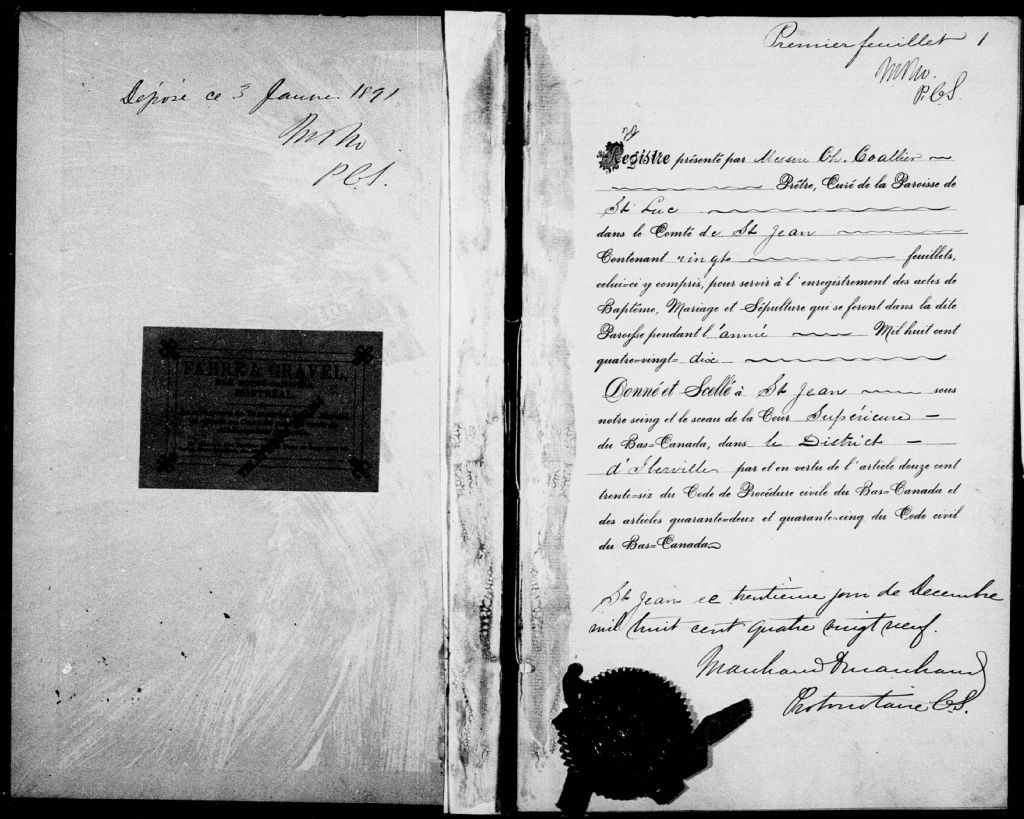 Déposé ce 3 Janvier 1891
P.C.S.
FABRE & GRAVEL,
Premier feuillet 1
P.C.S.
Registre présenté par Messire Ch. Coallier
Prêtre, Curé de la Paroisse de
St Luc
dans le Comté de St Jean
Contenant vingt feuillets,
celui-ci y compris, pour servir à l'enregistrement des actes de
Baptême, Mariage et Sépulture qui se feront dans la dite
Paroisse pendant l'année Mil huit cent
quatre=vingt= dix
Donné et Scellé à St Jean sous
notre seing et le sceau de la Cour Supérieure
du Bas=Canada, dans le District
d'Iberville par et en vertu de l'article douze cent
trente=six du Code de Procédure civile du Bas=Canada et
des articles quarante=deux et quarante=cinq du Code civil
du Bas=Canada
St Jean ce trentième jour de Decembre
mil huit cent quatre vingt neuf.
Marchand & Marchand
Protonotaire C.S.